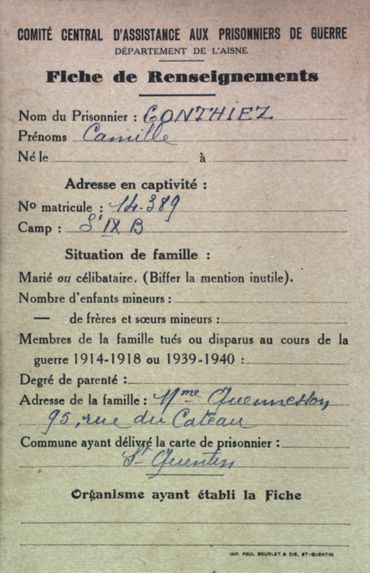 COMITÉ CENTRAL D'ASSISTANCE AUX PRISONNIERS DE GUERRE
DÉPARTEMENT DE L'AISNE
Fiche de Renseignements
Nom du Prisonnier : GONTHIEZ
Prénoms Camille
Né le à
Adresse en captivité :
No matricule : 14.389
Camp : St IX B
Situation de famille :
Marié ou célibataire. (Biffer la mention inutile).
Nombre d'enfants mineurs :
— de frères et sœurs mineurs :
Membres de la famille tués ou disparus au cours de la
guerre 1914-1918 ou 1939-1940 :
Degré de parenté :
Adresse de la famille : Mme Quennesson
95, rue du Cateau
Commune ayant délivré la carte de prisonnier :
St Quentin
Organisme ayant établi la Fiche
IMP. PAUL BOURLET & CIE, ST-QUENTIN